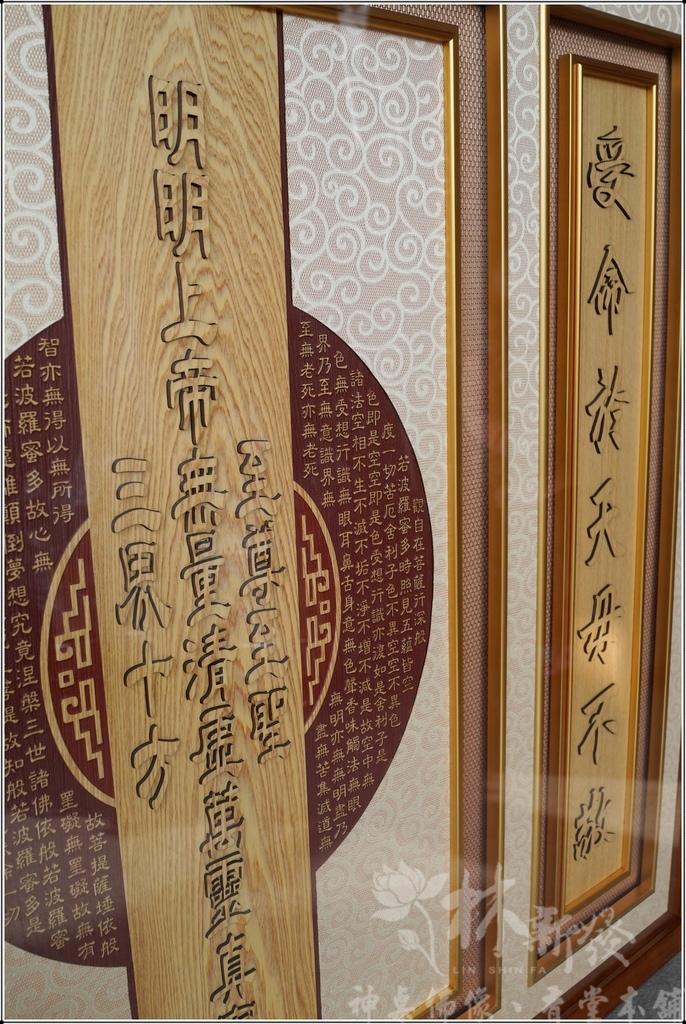 明明上帝無量清虛
至尊至聖
三界十方
萬靈真
觀自在菩薩行深般
若波羅蜜多時照見五蘊皆空
度一切苦厄舍利子色不異空空不異色
色即是空空即是色受想行識亦復如是舍利子是
諸法空相不生不滅不垢不淨不增不減是故空中無
色無受想行識無眼耳鼻舌身意無色聲香味觸法無眼
界乃至無意識界無
無明亦無無明盡乃
至無老死亦無老死
盡無苦集滅道無
智亦無得以無所得
故菩提薩埵依般
若波羅蜜多故心無
罣礙無罣礙故無有
倒夢想究竟涅槃三世諸佛依般若波羅蜜
菩提故知般若波羅蜜多是
命
天
不
林新發
LIN SHIN FA
神桌佛像、香堂本舖